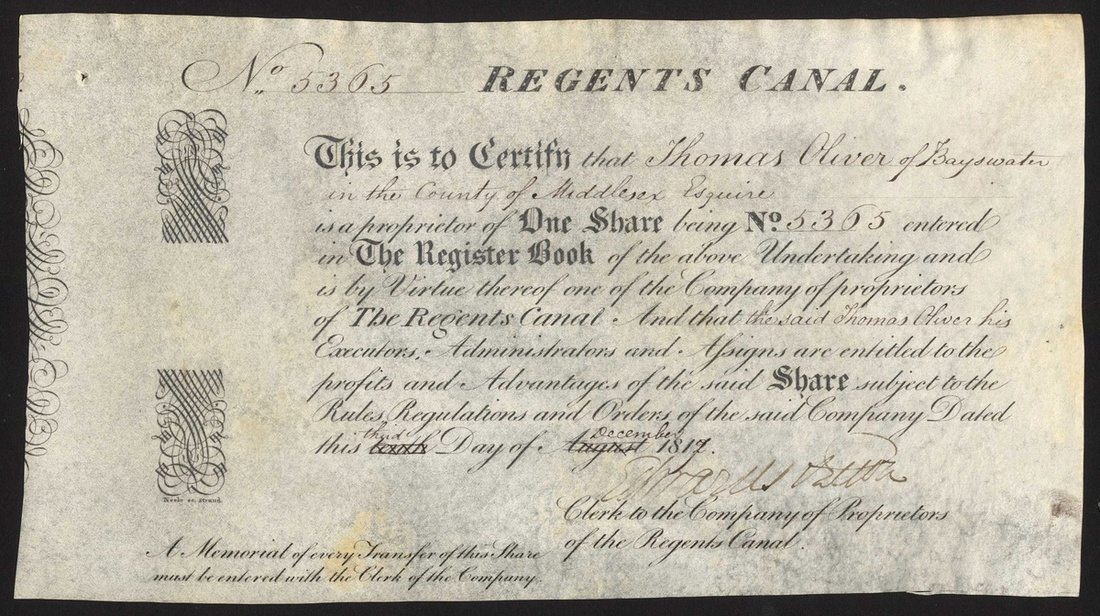 No 5365 REGENTS CANAL.
This is to Certify that Thomas Oliver of Bayswater
in the County of Middlesex Esquire
is a proprietor of One Share being No. 5365 entered
in The Register Book of the above Undertaking and
is by Virtue thereof one of the Company of proprietors
of The Regents Canal And that the said Thomas Oliver his
Executors, Administrators and Assigns are entitled to the
profits and Advantages of the said Share subject to the
Rules, Regulations and Orders of the said Company Dated
this third tenth Day of December August 1817.
Clerk to the Company of Proprietors
of the Regents Canal.
Neele sc. strand.
A Memorial of every Transfer of this Share
must be entered with the Clerk of the Company.